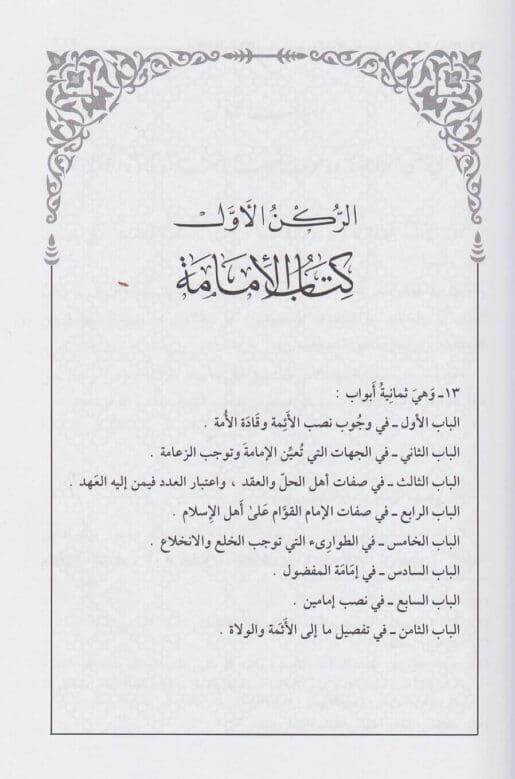 الرُّكْنُ الأَوَّلُ
كِتَابُ الإِمَامَةِ
١٣ـ وَهيَ ثمانيةُ أَبواب :
الباب الأول ـ في وجُوب نصب الأَئِمة وقَادَة الأُمة .
الباب الثاني ـ في الجهات التي تُعيِّن الإمامةَ وتوجب الزعامة .
الباب الثالث ـ في صفات أهل الحلّ والعقد ، واعتبار العدد فيمن إليه العَهد .
الباب الرابع ـ في صفات الإمام القوَّام عَلىٰ أَهل الإِسلام .
الباب الخامس ـ في الطوارىء التي توجب الخلع والانخلاع .
الباب السادس ـ في إمَامَة المفضول .
الباب السابع ـ في نصب إمامين .
الباب الثامن ـ في تفصيل ما إلى الأَئمة والولاة .